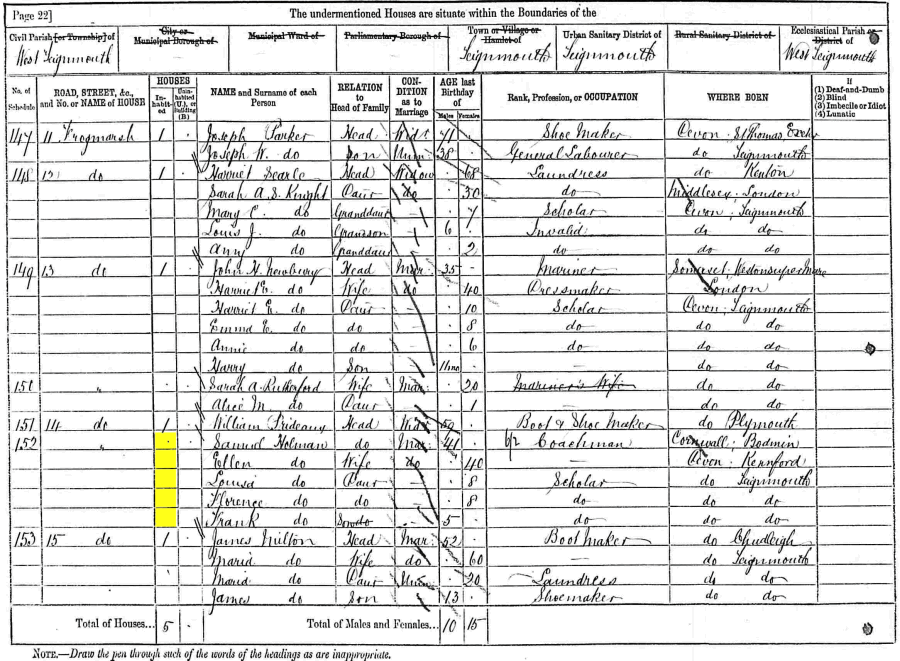 Page 22]
The undermentioned Houses are situate within the Boundaries of the
Civil Parish [or Township] of
West Teignmouth
City or Municipal Borough of
Municipal Ward of
Parliamentary Borough of
Town or Village or Hamlet of
Teignmouth
Urban Sanitary District of
Teignmouth
Rural Sanitary District of
Ecclesiastical Parish or District of
West Teignmouth
No. of Schedule
ROAD, STREET, &c., and No. or NAME of HOUSE
HOUSES
Inhabited
Uninhabited (U.), or Building (B)
NAME and Surname of each Person
RELATION to Head of Family
CONDITION as to Marriage
AGE last Birthday of
Males
Females
Rank, Profession, or OCCUPATION
WHERE BORN
If
(1) Deaf-and-Dumb
(2) Blind
(3) Imbecile or Idiot
(4) Lunatic
147 11 Frogmarsh 1 Joseph Parker Head Widr 71 Shoe Maker Devon; St Thomas Exeter
Joseph W. do Son Unm 38 General Labourer do Teignmouth
148 12 do 1 Harriet Searle Head Widow 68 Laundress do Kenton
Sarah A. S. Knight Daur do 30 do Middlesex; London
Mary C. do Granddaur 7 Scholar Devon; Teignmouth
Louis J. do Grandson 6 Invalid do do
Amy do Granddaur 2 do do do
149 13 do 1 John H. Newbury Head Mar 35 Mariner Somerset; Weston super Mare
Harriet E. do Wife do 40 Dressmaker London
Harriet E. do Daur 10 Scholar Devon; Teignmouth
Emma E. do do 8 do do do
Annie do do 6 do do do
Harry do Son 11mo do do
150 " Sarah A. Rutherford Wife Mar 20 Mariner's Wife do do
Alice M. do Daur 1 do do
151 14 do 1 William Prideaux Head Wid 50 Boot & Shoe Maker do Plymouth
152 " Samuel Holman do Mar 41 Coachman Cornwall; Bodmin
Ellen do Wife do 40 Devon; Kennford
Louisa do Daur 8 Scholar do Teignmouth
Florence do do 8 do do do
Frank do Son do 5 do do do
153 15 do 1 James Milton Head Mar 52 Boot Maker do Chudleigh
Maria do Wife do 60 do Teignmouth
Maria do Daur Unm 20 Laundress do do
James do Son 13 Shoemaker do do
Total of Houses... 5
Total of Males and Females... 10 15
NOTE.—Draw the pen through such of the words of the headings as are inappropriate.